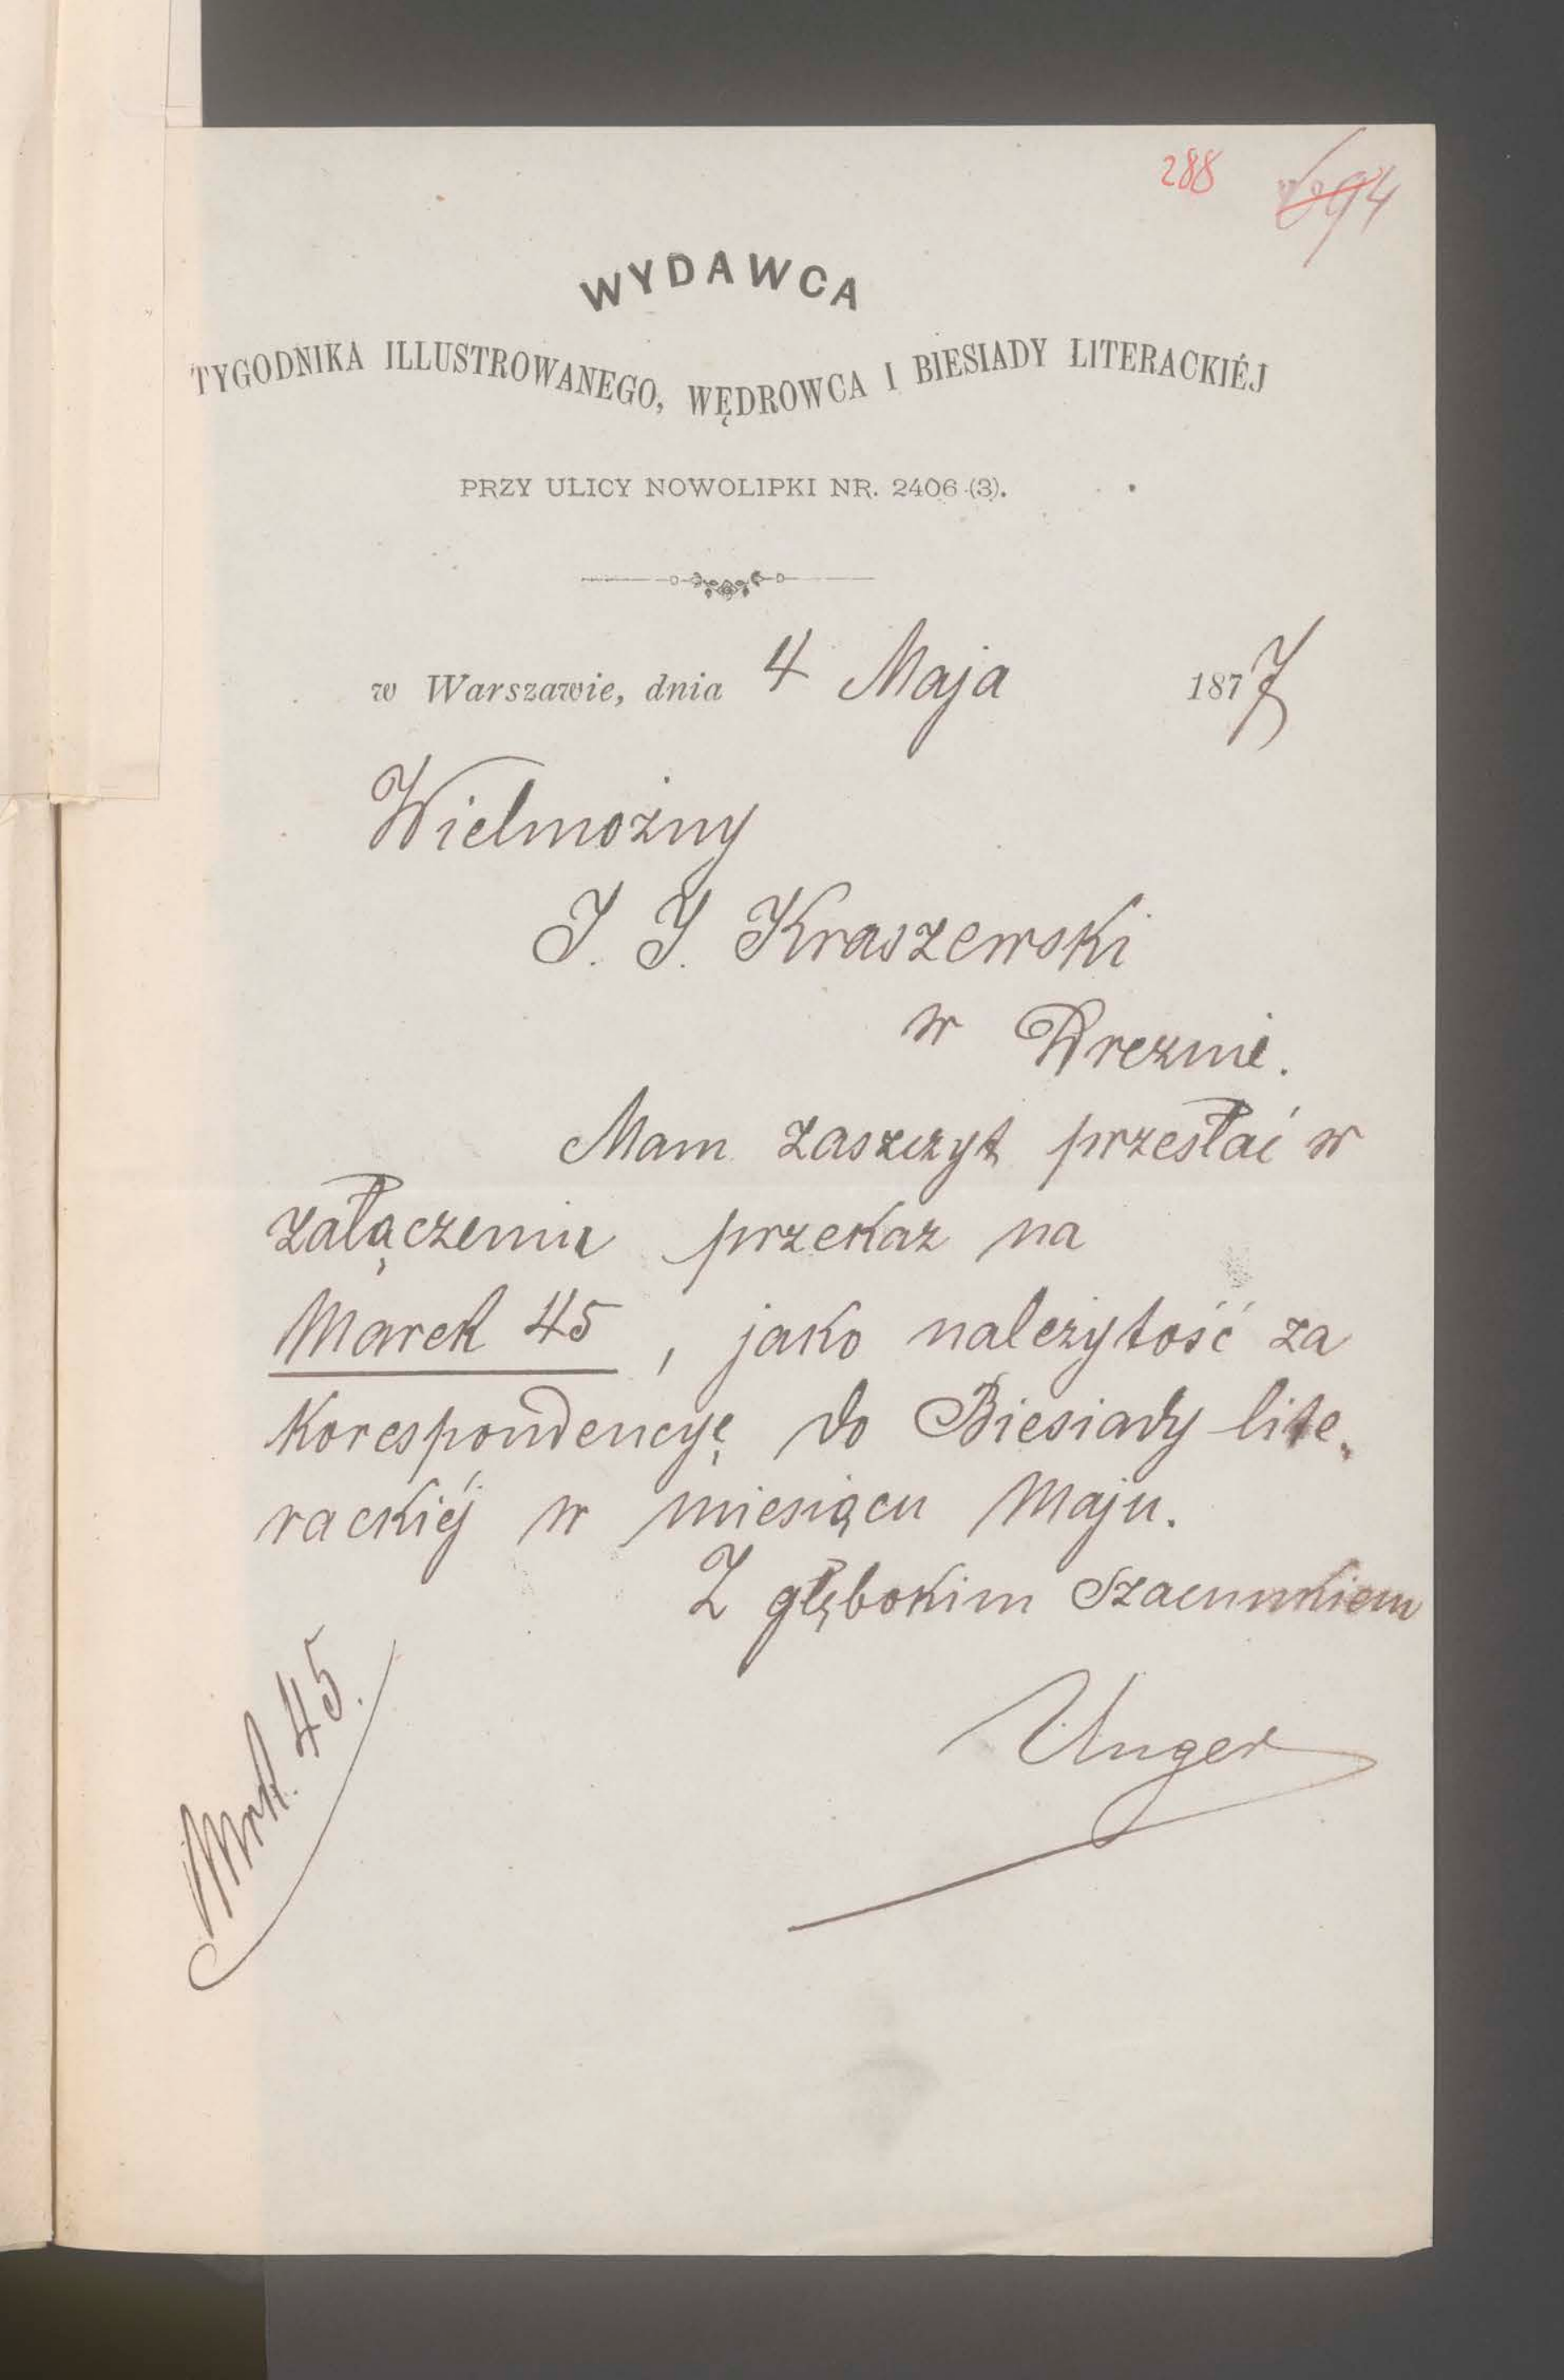 288
WYDAWCA
TYGODNIKA ILLUSTROWANEGO, WĘDROWCA I BIESIADY LITERACKIÉJ
PRZY ULICY NOWOLIPKI NR. 2406 (3).
w Warszawie, dnia 4 Maja 1877
Wielmożny
J. I. Kraszewski
w Dreznie.
Mam zaszczyt przesłać w
załączeniu przekaz na
Marek 45, jako należytość za
Korespondencyę do Biesiady lite-
rackiéj w miesiącu Maju.
Z głębokim Szacunkiem
Unger
Mrk. 45.